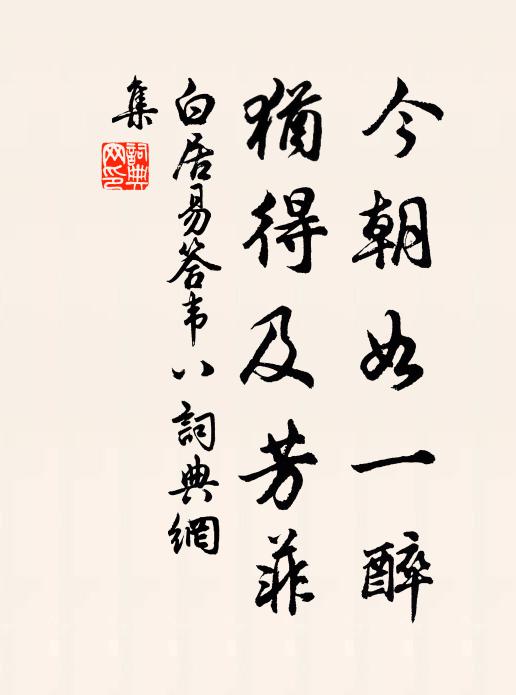 今朝如一醉
猶得及芳菲
白居易答韦八詞典網
集
詞典
网印